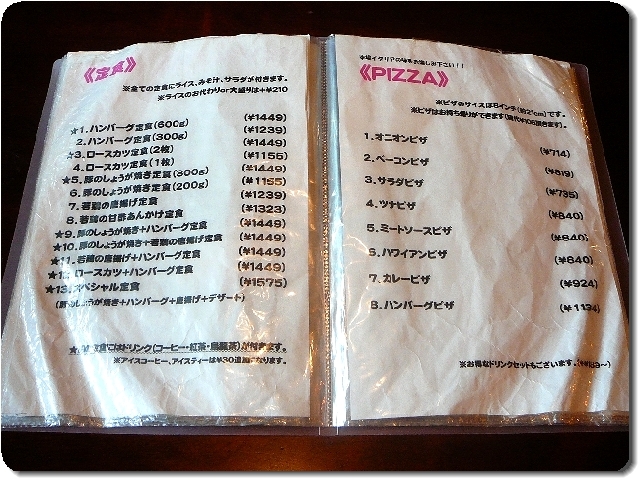 《定食》
※全ての定食にライス、みそ汁、サラダが付きます。
※ライスのお代わりor大盛りは+¥210
★1.ハンバーグ定食(600g) (¥1449)
2.ハンバーグ定食(300g) (¥1239)
★3.ロースカツ定食(2枚) (¥1449)
4.ロースカツ定食(1枚) (¥1155)
★5.豚のしょうが焼き定食(300g) (¥1449)
6.豚のしょうが焼き定食(200g) (¥1155)
7.若鶏の唐揚げ定食 (¥1239)
8.若鶏の甘酢あんかけ定食 (¥1323)
★9.豚のしょうが焼き+ハンバーグ定食 (¥1449)
★10.豚のしょうが焼き+若鶏の唐揚げ定食 (¥1449)
★11.若鶏の唐揚げ+ハンバーグ定食 (¥1449)
★12.ロースカツ+ハンバーグ定食 (¥1449)
★13.スペシャル定食 (¥1575)
(豚のしょうが焼き+ハンバーグ+唐揚げ+デザート)
定食にはドリンク(コーヒー・紅茶・烏龍茶)が付きます。
※アイスコーヒー、アイスティーは¥30追加になります。
本場イタリアの味をお楽しみ下さい!!
《PIZZA》
※ピザのサイズは8インチ(約2 cm)です。
※ピザはお持ち帰りができます(箱代¥105頂きます)。
1.オニオンピザ (¥714)
2.ベーコンピザ (¥819)
3.サラダピザ (¥735)
4.ツナピザ (¥840)
5.ミートソースピザ (¥840)
6.ハワイアンピザ (¥840)
7.カレーピザ (¥924)
8.ハンバーグピザ (¥1134)
※お得なドリンクセットもございます。